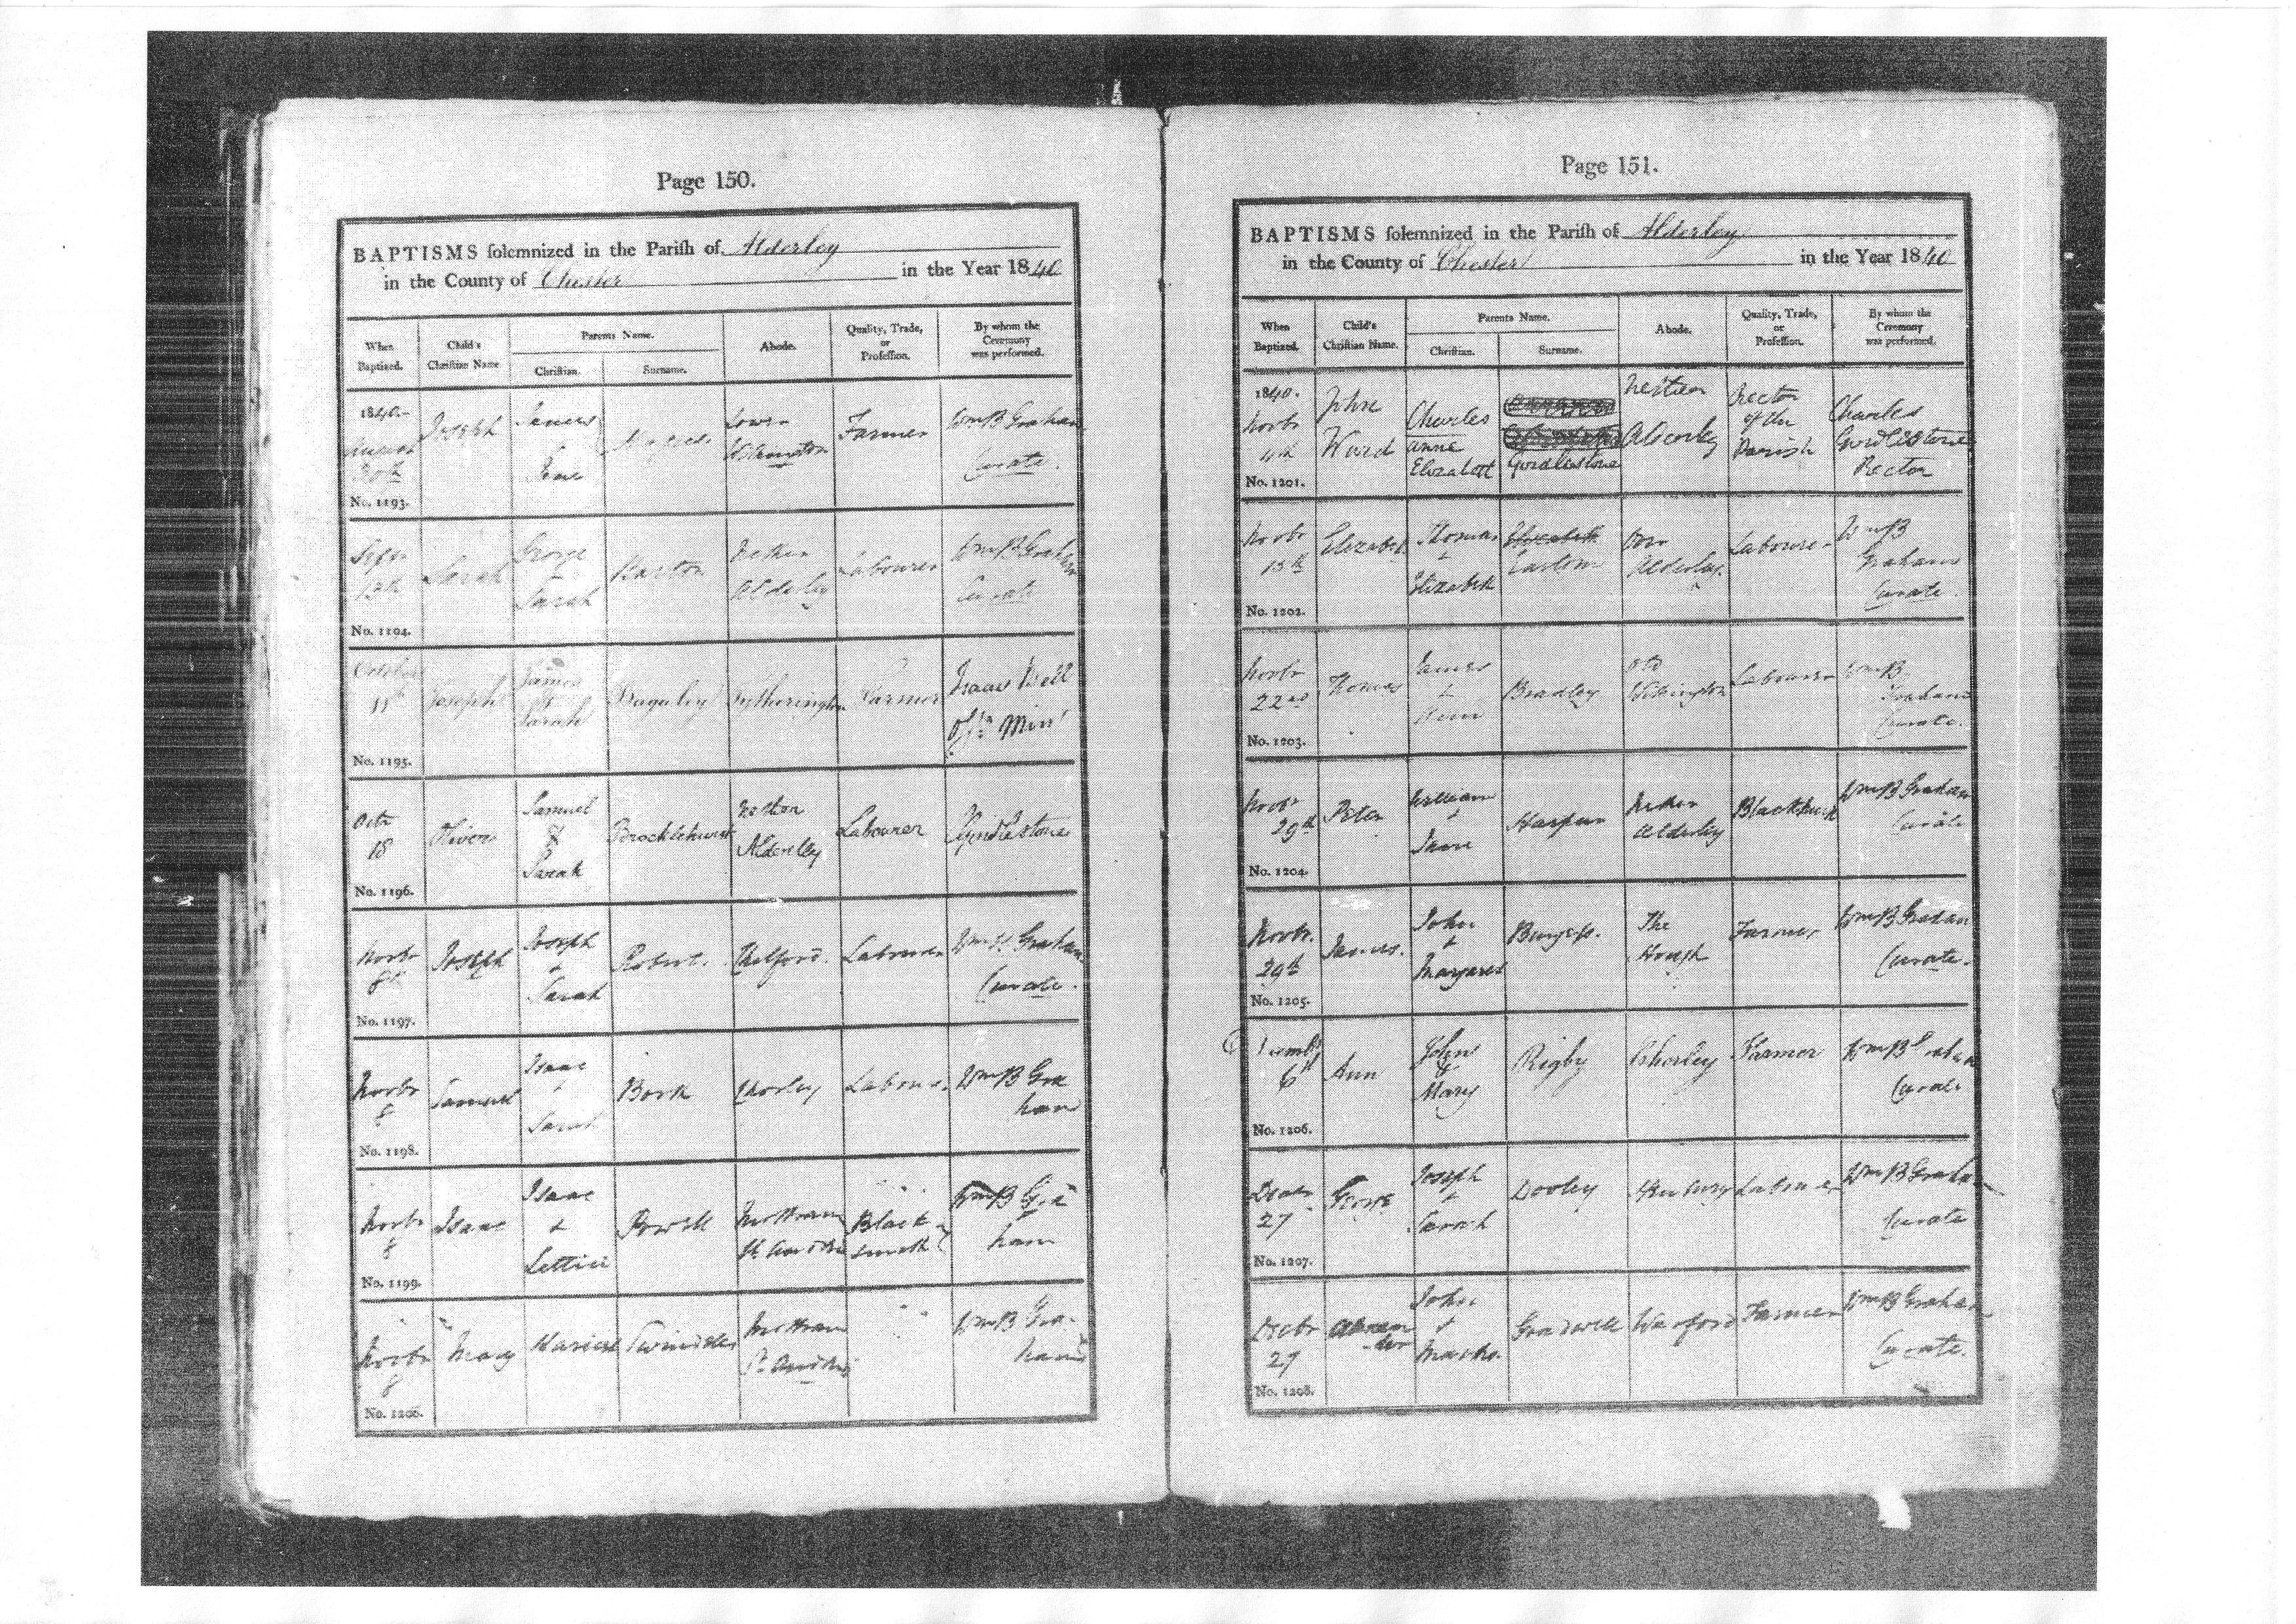 Page 150.
BAPTISMS solemnized in the Parish of Alderley
in the County of Chester in the Year 1840
When Baptized. Child's Christian Name Parents Name. Christian. Surname. Abode. Quality, Trade, or Profession. By whom the Ceremony was performed.
1840.
August 30th Joseph James Jane Lower Withington Farmer Wm B Graham Curate.
No. 1193.
Septr 13th Sarah George Sarah Barton Nether Alderley Labourer Wm B Graham Curate
No. 1194.
October Joseph James & Sarah Tytherington Farmer Isaac Bell Offg Minr
No. 1195.
Octr 18 Oliver Samuel & Sarah Brocklehurst Nether Alderley Labourer CGirdlestone
No. 1196.
Novbr 8th Joseph Joseph & Sarah Chelford. Labourer Wm B Graham Curate.
No. 1197.
Novbr 8 Samuel Isaac & Sarah Chorley Labourer Wm B Graham
No. 1198.
Novbr 8 Isaac Isaac & Lettice Powell Mottram St Andrew Blacksmith Wm B Graham
No. 1199.
Novbr 8 Mary Mottram St Andrew Wm B Graham
No. 1200.
Page 151.
BAPTISMS solemnized in the Parish of Alderley
in the County of Chester in the Year 1840
When Baptized. Child's Christian Name. Parents Name. Christian. Surname. Abode. Quality, Trade, or Profession. By whom the Ceremony was performed.
1840.
Novbr John Ward Charles Anne Elizabeth Girdlestone Nether Alderley Rector of the Parish Charles Girdlestone Rector
No. 1201.
Novbr 15th Elizabeth Thomas & Elizabeth Over Alderley. Labourer Wm B Graham Curate.
No. 1202.
Novbr 22nd Thomas James & Ann Bradley Old Withington Labourer Wm B Graham Curate.
No. 1203.
Novbr 29th Peter William & Jane Harper Nether Alderley Wm B Graham Curate
No. 1204.
Novbr. 29th James. John & Margaret Burgess. The Hough Farmer Wm B Graham Curate.
No. 1205.
Decembr 6th Ann John & Mary Rigby Chorley Farmer Wm B Graham Curate
No. 1206.
Decbr 27 George Joseph & Sarah Dooley Henbury Labourer Wm B Graham Curate
No. 1207.
Decbr 27 John & Martha. Gradwell Warford Farmer Wm B Graham Curate.
No. 1208.